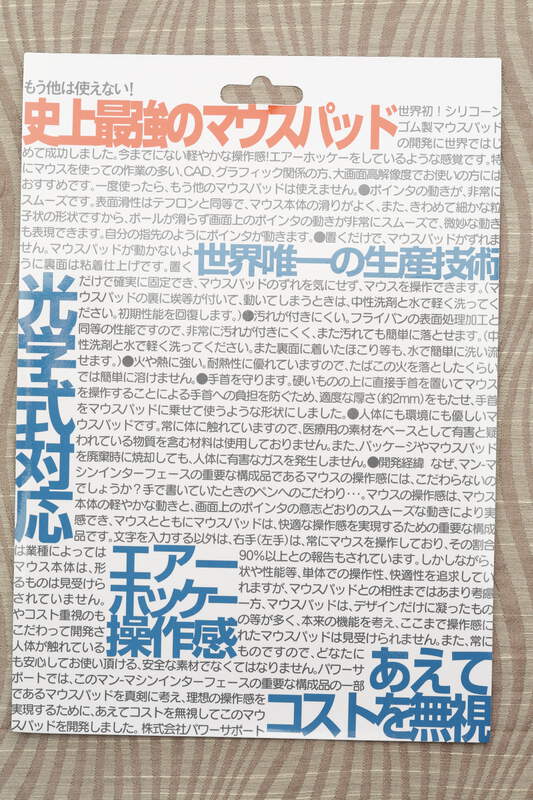 もう他は使えない！
史上最強のマウスパッド
世界初！シリコーン
ゴム製マウスパッド
の開発に世界ではじ
めて成功しました。今までにない軽やかな操作感！エアーホッケーをしているような感覚です。特
にマウスを使っての作業の多い、CAD、グラフィック関係の方、大画面高解像度でお使いの方には
おすすめです。一度使ったら、もう他のマウスパッドは使えません。●ポインタの動きが、非常に
スムーズです。表面滑性はテフロンと同等で、マウス本体の滑りがよく、また、きわめて細かな粒
子状の形状ですから、ボールが滑らず画面上のポインタの動きが非常にスムーズで、微妙な動き
も表現できます。自分の指先のようにポインタが動きます。●置くだけで、マウスパッドがずれま
せん。マウスパッドが動かないよ
うに裏面は粘着仕上げです。置く
世界唯一の生産技術
光学式対応
だけで確実に固定でき、マウスパッドのずれを気にせず、マウスを操作できます。（マ
ウスパッドの裏に埃等が付いて、動いてしまうときは、中性洗剤と水で軽く洗ってく
ださい。初期性能を回復します。）●汚れが付きにくい。フライパンの表面処理加工と
同等の性能ですので、非常に汚れが付きにくく、また汚れても簡単に落とせます。（中
性洗剤と水で軽く洗ってください。また裏面に着いたほこり等も、水で簡単に洗い流
せます。）●火や熱に強い。耐熱性に優れていますので、たばこの火を落としたくらい
では簡単に溶けません。●手首を守ります。硬いものの上に直接手首を置いてマウス
を操作することによる手首への負担を防ぐため、適度な厚さ（約2mm）をもたせ、手首
をマウスパッドに乗せて使うような形状にしました。●人体にも環境にも優しいマ
ウスパッドです。常に体に触れていますので、医療用の素材をベースとして有害と疑
われている物質を含む材料は使用しておりません。また、パッケージやマウスパッド
を廃棄時に焼却しても、人体に有害なガスを発生しません。●開発経緯 なぜ、マン-マ
シンインターフェースの重要な構成品であるマウスの操作感には、こだわらないの
でしょうか？手で書いていたときのペンへのこだわり・・・。マウスの操作感は、マウス
本体の軽やかな動きと、画面上のポインタの意志どおりのスムーズな動きにより実
感でき、マウスとともにマウスパッドは、快適な操作感を実現するための重要な構成
品です。文字を入力する以外は、右手（左手）は、常にマウスを操作しており、その割合
は業種によっては
エアー
ホッケー
操作感
90%以上との報告もされています。しかしながら、
マウス本体は、形
状や性能等、単体での操作性、快適性を追求してい
るものは見受けら
れますが、マウスパッドとの相性まではあまり考慮
されていません。
一方、マウスパッドは、デザインだけに凝ったもの
やコスト重視のも
の等が多く、本来の機能を考え、ここまで操作感に
こだわって開発さ
れたマウスパッドは見受けられません。また、常に
人体が触れている
ものですので、どなたに
も安心してお使い頂ける、安全な素材でなくてはなりません。パワーサ
ポートでは、このマン-マシンインターフェースの重要な構成品の一部
であるマウスパッドを真剣に考え、理想の操作感を
実現するために、あえてコストを無視してこのマウ
スパッドを開発しました。株式会社パワーサポート
あえて
コストを無視